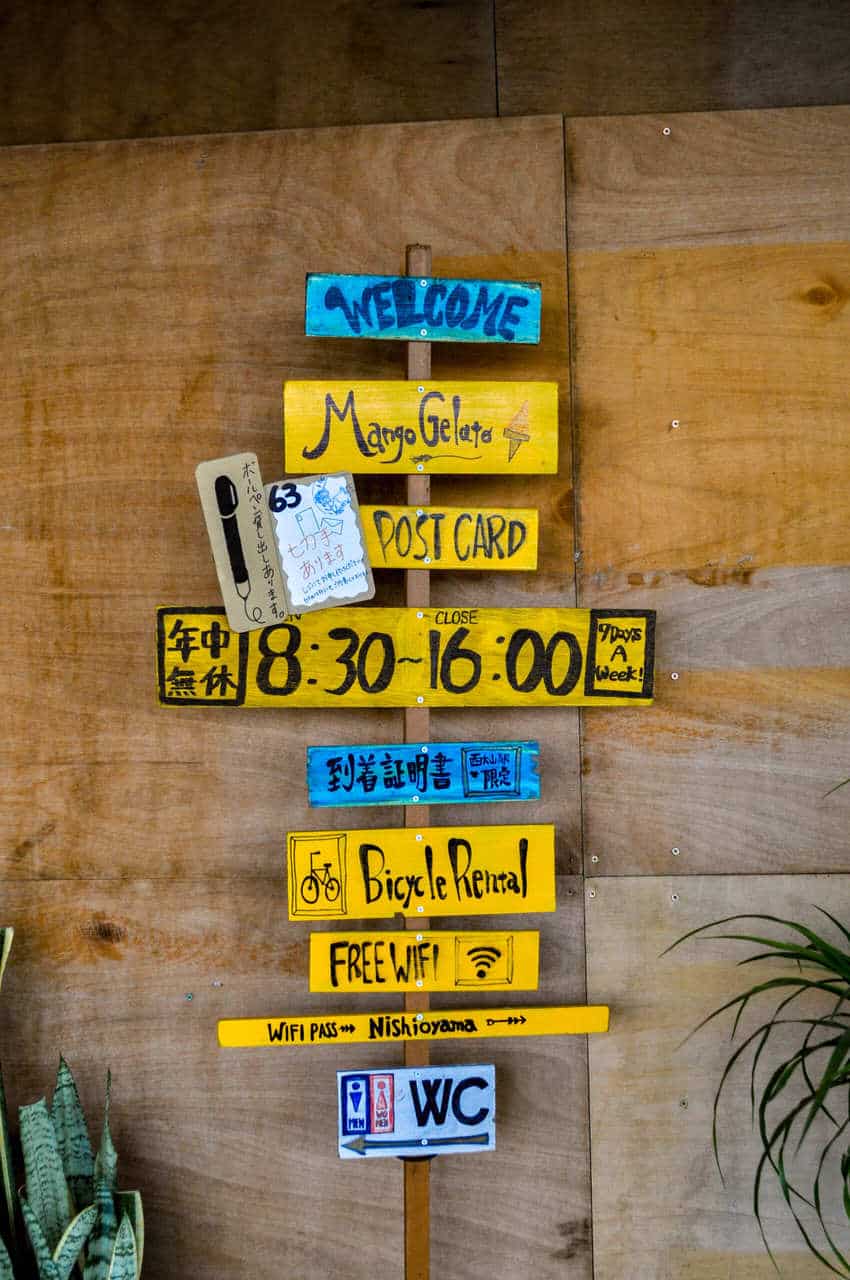 WELCOME
Mango Gelato
ボールペン貸し出しあります。
63
セカ手
あります
POST CARD
CLOSE
年中
無休
8:30~16:00
7Days
A
Week!
到着証明書
西大山駅
限定
Bicycle Rental
FREE WIFI
WIFI PASS Nishioyama
MEN
WO
MEN
WC